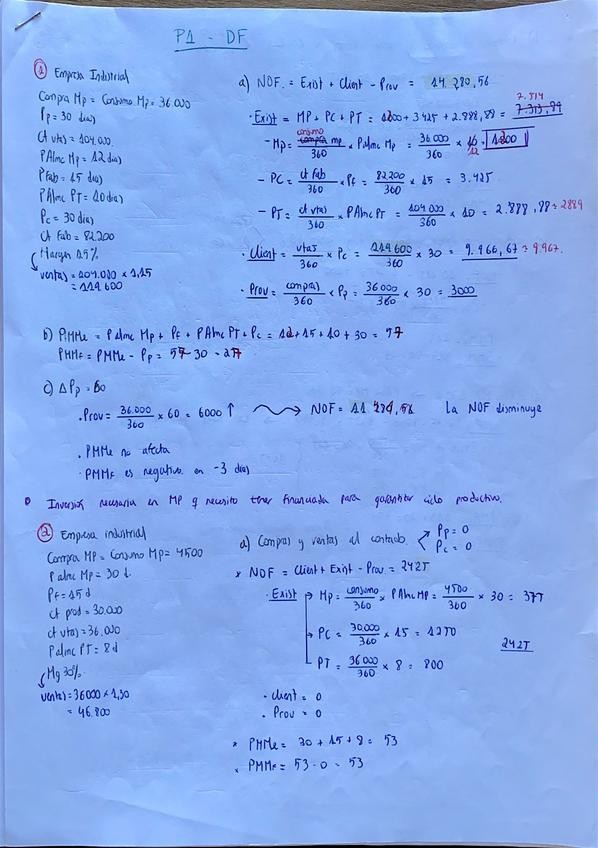 P1 - DF
① Empresa Industrial
Compra Mp = Consumo Mp = 36.000
Pp = 30 dias
Ct vtas = 104.000
PAlmc Mp = 12 dias
PFab = 15 dias
PAlmc PT = 10 dias
Pc = 30 dias
Ct Fab = 82.200
Margen 15%
ventas = 104.000 x 1,15
= 119.600
a) NOF. = Exist + Client - Prov = 14.280,56
7.514
· Exist = MP + PC + PT = 1200 + 3425 + 2.888,89 = 7.313,89
consumo
- Mp = compra mp/360 x PAlmc Mp = 36.000/360 x 10 = 1200
12
- PC = ct Fab/360 x Pf = 82.200/360 x 15 = 3.425
- PT = ct vtas/360 x PAlmc PT = 104.000/360 x 10 = 2.888,88 = 2889
· Client = vtas/360 x Pc = 119.600/360 x 30 = 9.966,67 = 9.967.
· Prov = compras/360 x Pp = 36.000/360 x 30 = 3000
b) PMMe = PAlmc Mp + Pf + PAlmc PT + Pc = 12 + 15 + 10 + 30 = 57
PMMf = PMMe - Pp = 57 - 30 = 27
c) ΔPp = 60
· Prov = 36.000/360 x 60 = 6000 ↑ → NOF = 11.284,56 La NOF disminuye
· PMMe no afecta
· PMMf es negativo en -3 dias
Inversión necesaria en MP q necesito tener financiada para garantizar ciclo productivo.
② Empresa industrial
Compra MP = Consumo Mp = 4500
Palmc Mp = 30 d.
Pf = 15 d
ct prod = 30.000
ct vtas = 36.000
Palmc PT = 8 d
Mg 30%
ventas = 36000 x 1,30
= 46.800
a) Compras y ventas al contado. Pp = 0
Pc = 0
* NOF = Client + Exist - Prov = 2425
· Exist → Mp = consumo/360 x PAlmc MP = 4500/360 x 30 = 375
→ PC = 30.000/360 x 15 = 1250
PT = 36000/360 x 8 = 800
2425
· client = 0
· Prov = 0
* PMMe = 30 + 15 + 8 = 53
* PMMf = 53 - 0 = 53